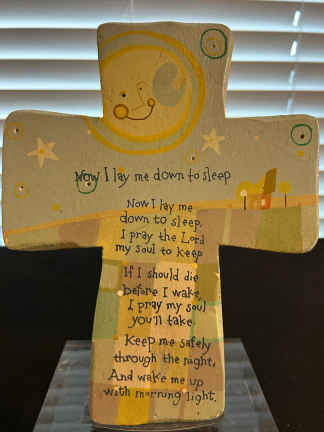 Now I lay me down to sleep
Now I lay me
down to sleep.
I pray the Lord
my soul to keep
If I should die
before I wake,
I pray my soul
you'll take.
Keep me safely
through the night,
And wake me up
with morning light.